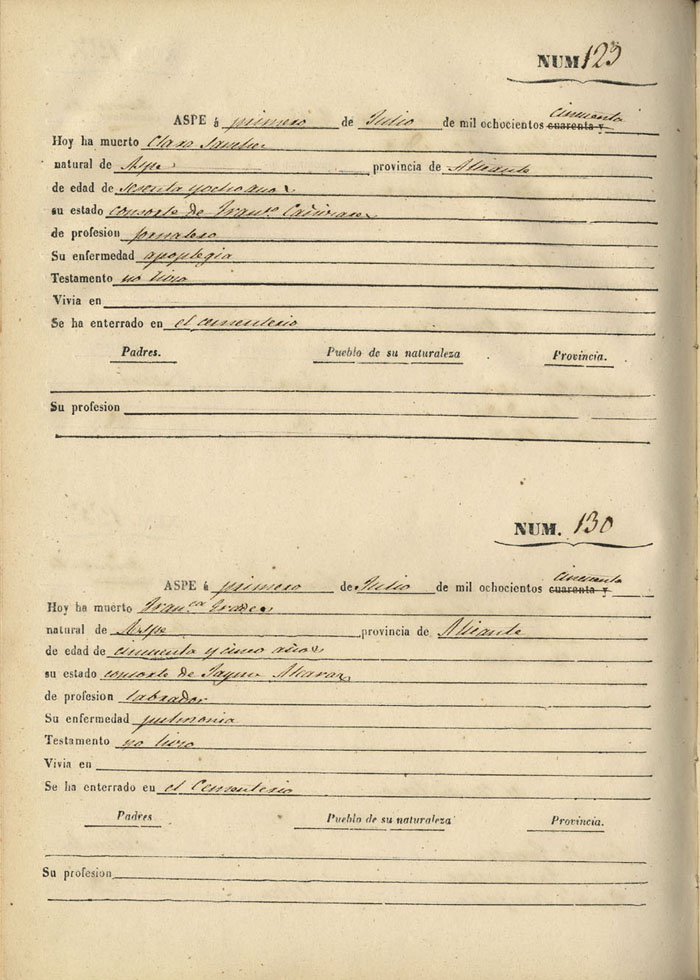 NUM 129
ASPE á primero de Julio de mil ochocientos cincuenta cuarenta y
Hoy ha muerto Clara
natural de Aspe provincia de Alicante
de edad de sesenta y ocho años
su estado consorte de Fran.co Cañizares
de profesion jornalero
Su enfermedad apoplegia
Testamento no livro
Vivia en
Se ha enterrado en el cementerio
Padres. Pueblo de su naturaleza Provincia.
Su profesion
NUM. 130
ASPE á primero de Julio de mil ochocientos cincuenta cuarenta y
Hoy ha muerto Fran.ca
natural de Aspe provincia de Alicante
de edad de cincuenta y cinco años
su estado consorte de Jayme
de profesion labrador
Su enfermedad pulmonia
Testamento no livro
Vivia en
Se ha enterrado en el Cementerio
Padres Pueblo de su naturaleza Provincia.
Su profesion